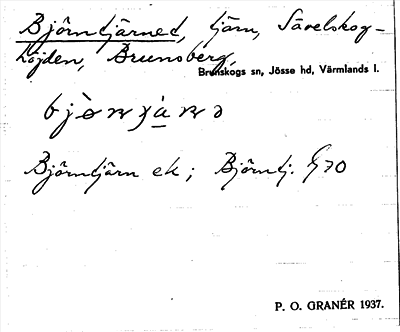 Björntjärnet, tjärn, Sävelskog-
höjden, Brunsberg,
Brunskogs sn, Jösse hd, Värmlands l.
Björntjärn ek; Björntj. G70
P. O. GRANÉR 1937.